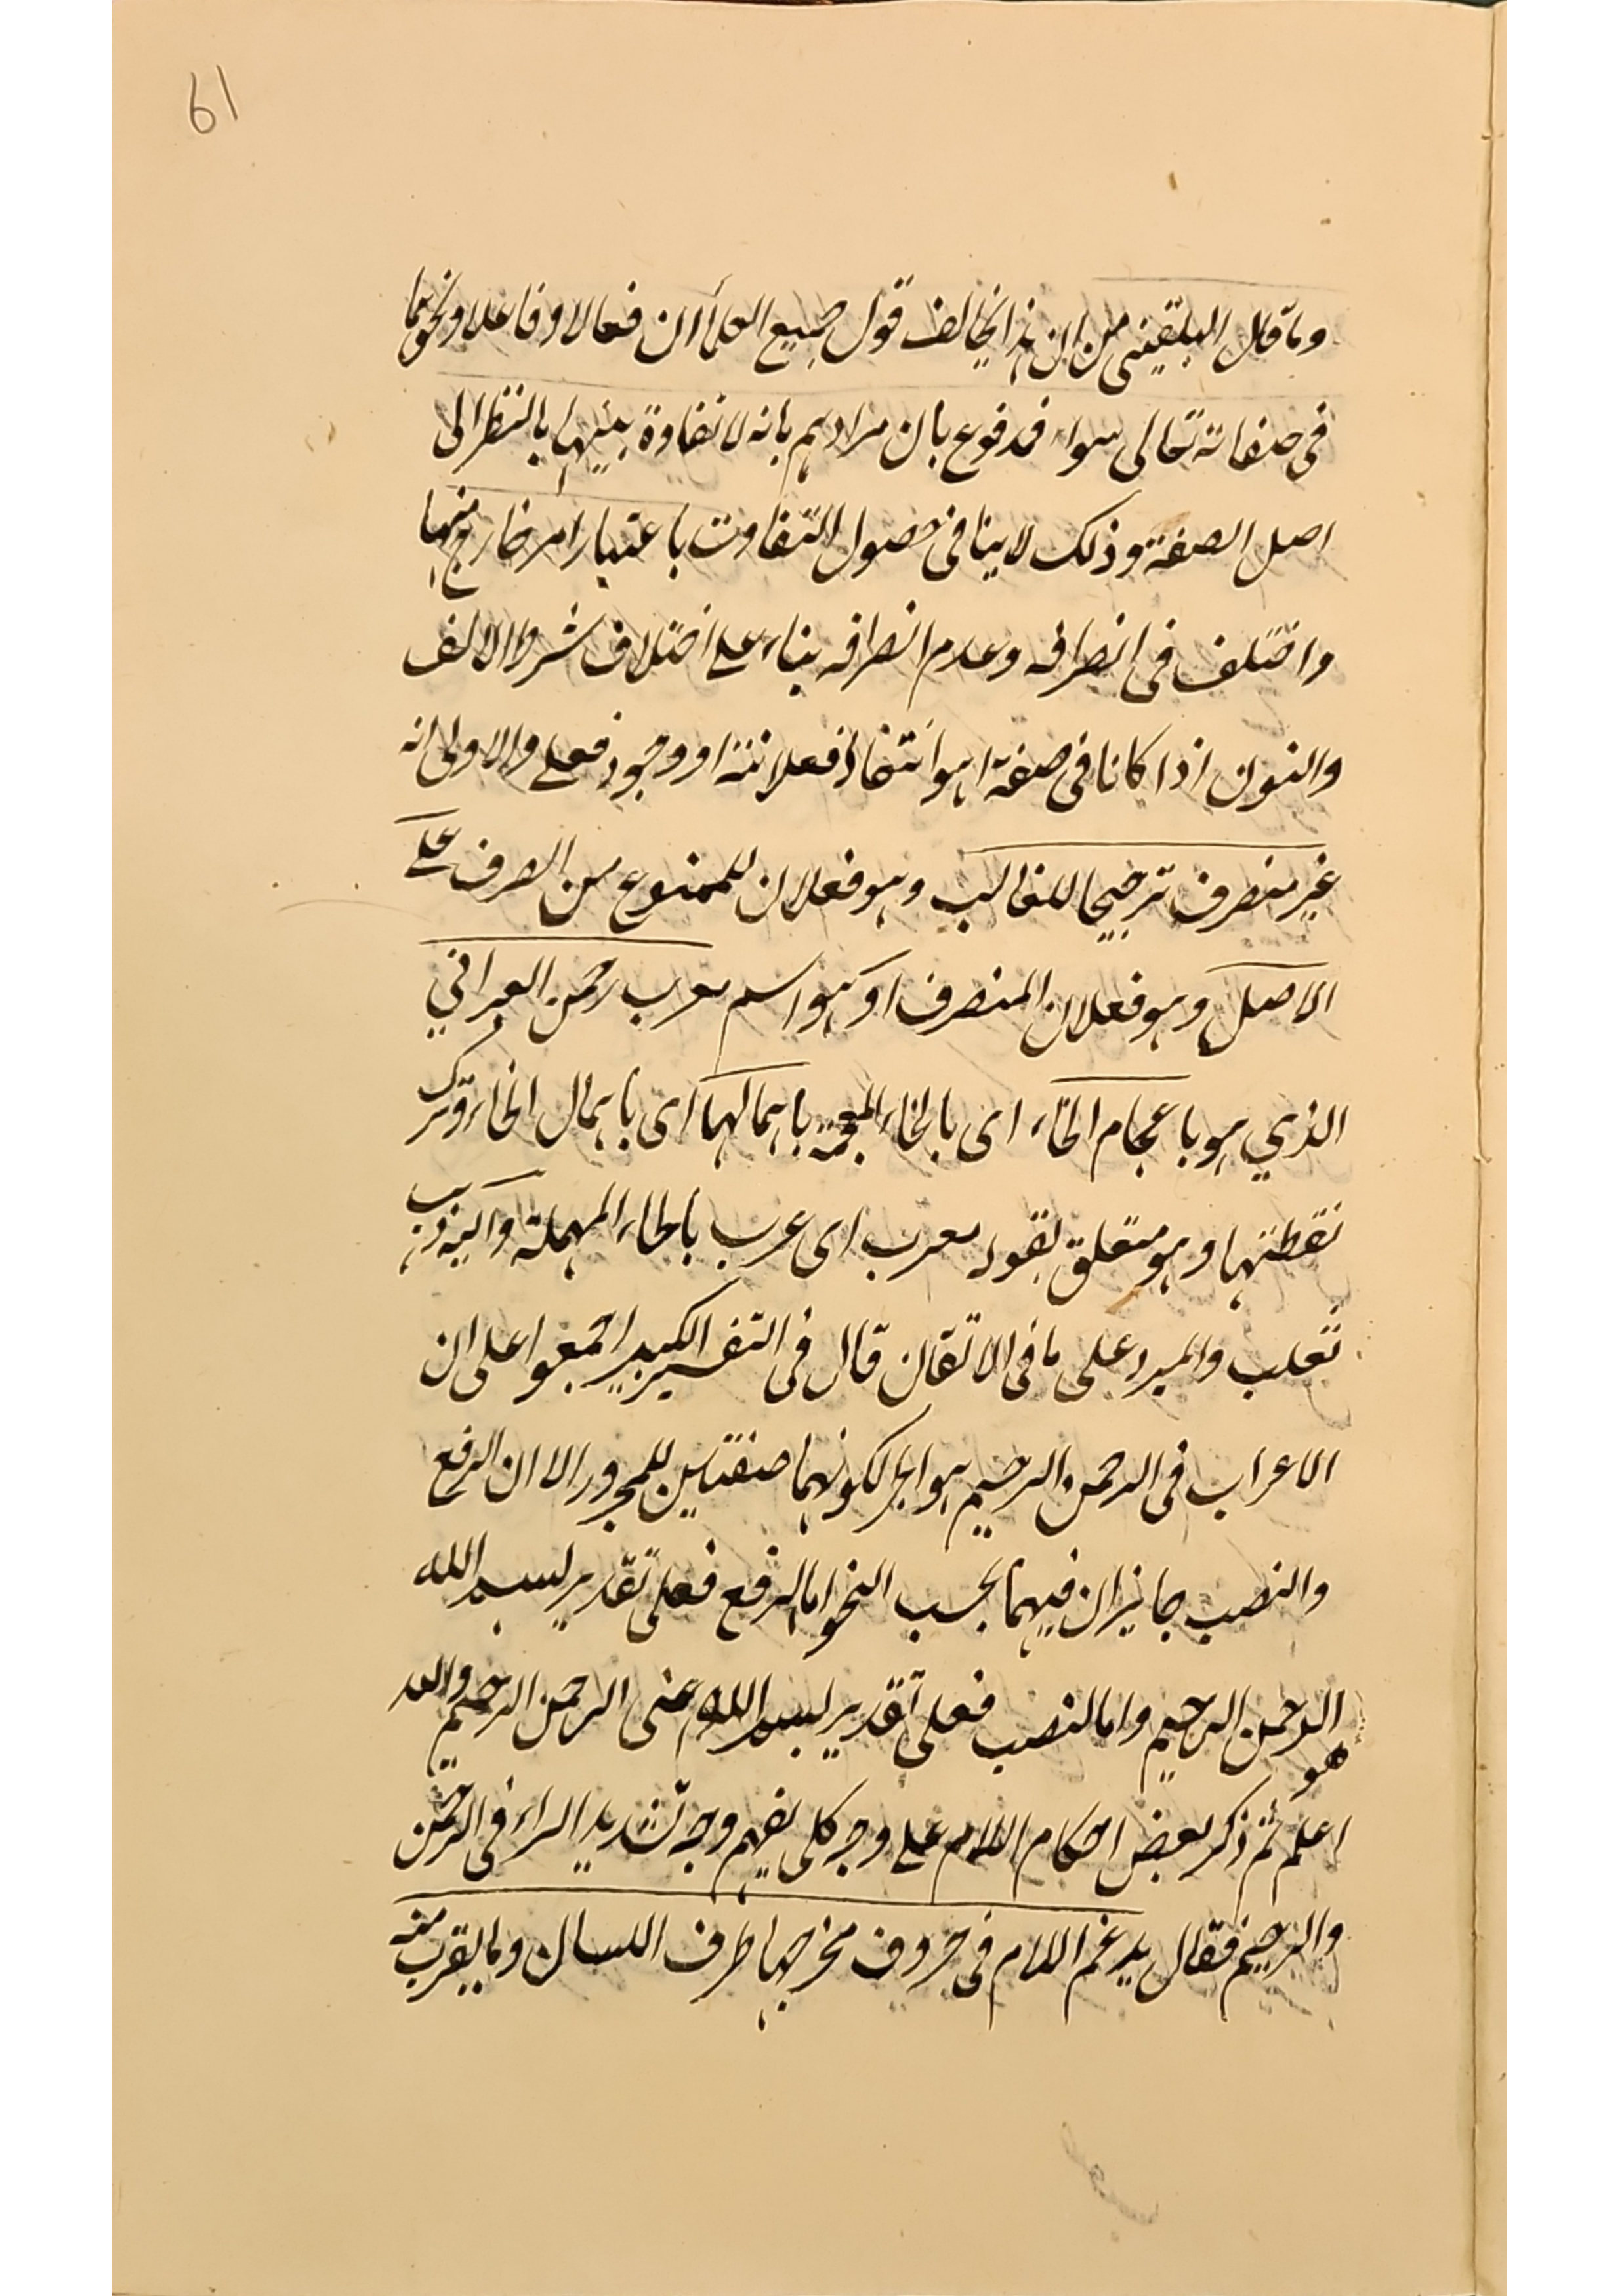 61
وما قال البلقيني من ان هذا يخالف قول جميع العلماء ان فعالا وفاعلا ونحوهما
في صفاته تعالى سواء فمدفوع بان مرادهم بانه لا تفاوة بينها بالنظر الى
اصل الصفة وذلك لا ينافي حصول التفاوت باعتبار أمر خارج منها
واختلف في انصرافه وعدم انصرافه بناء على اختلاف شرط الالف
والنون اذا كانا في صفة اهو انتفاء فعلانة او وجود فعلى والاولى انه
غير منصرف ترجيحا للغالب وهو فعلان للممنوع من الصرف على
الاصل وهو فعلان المنصرف او هو اسم معرب رخمن العبراني
الذي هو باعجام الخاء اى بالخاء المعجمة باهمالها اى باهمال الخاء وترك
نقطتها وهو متعلق بقوله معرب اى عرب بالحاء المهملة واليه ذهب
ثعلب والمبرد على ما في الاتقان قال في التفسير الكبير اجمعوا على ان
الاعراب في الرحمن الرحيم هو الجر لكونهما صفتين للمجرور الا ان الرفع
والنصب جايزان فيهما بحسب النحو اما الرفع فعلى تقدير بسم الله
هو الرحمن الرحيم واما لنصب فعلى تقدير بسم الله اعنى الرحمن الرحيم والله
اعلم ثم ذكر بعض احكام اللام على وجه كلى يفهم وجه تشديد الراء في الرحمن
والرحيم فقال يدغم اللام في حروف مخرجها طرف اللسان وما يقرب منه